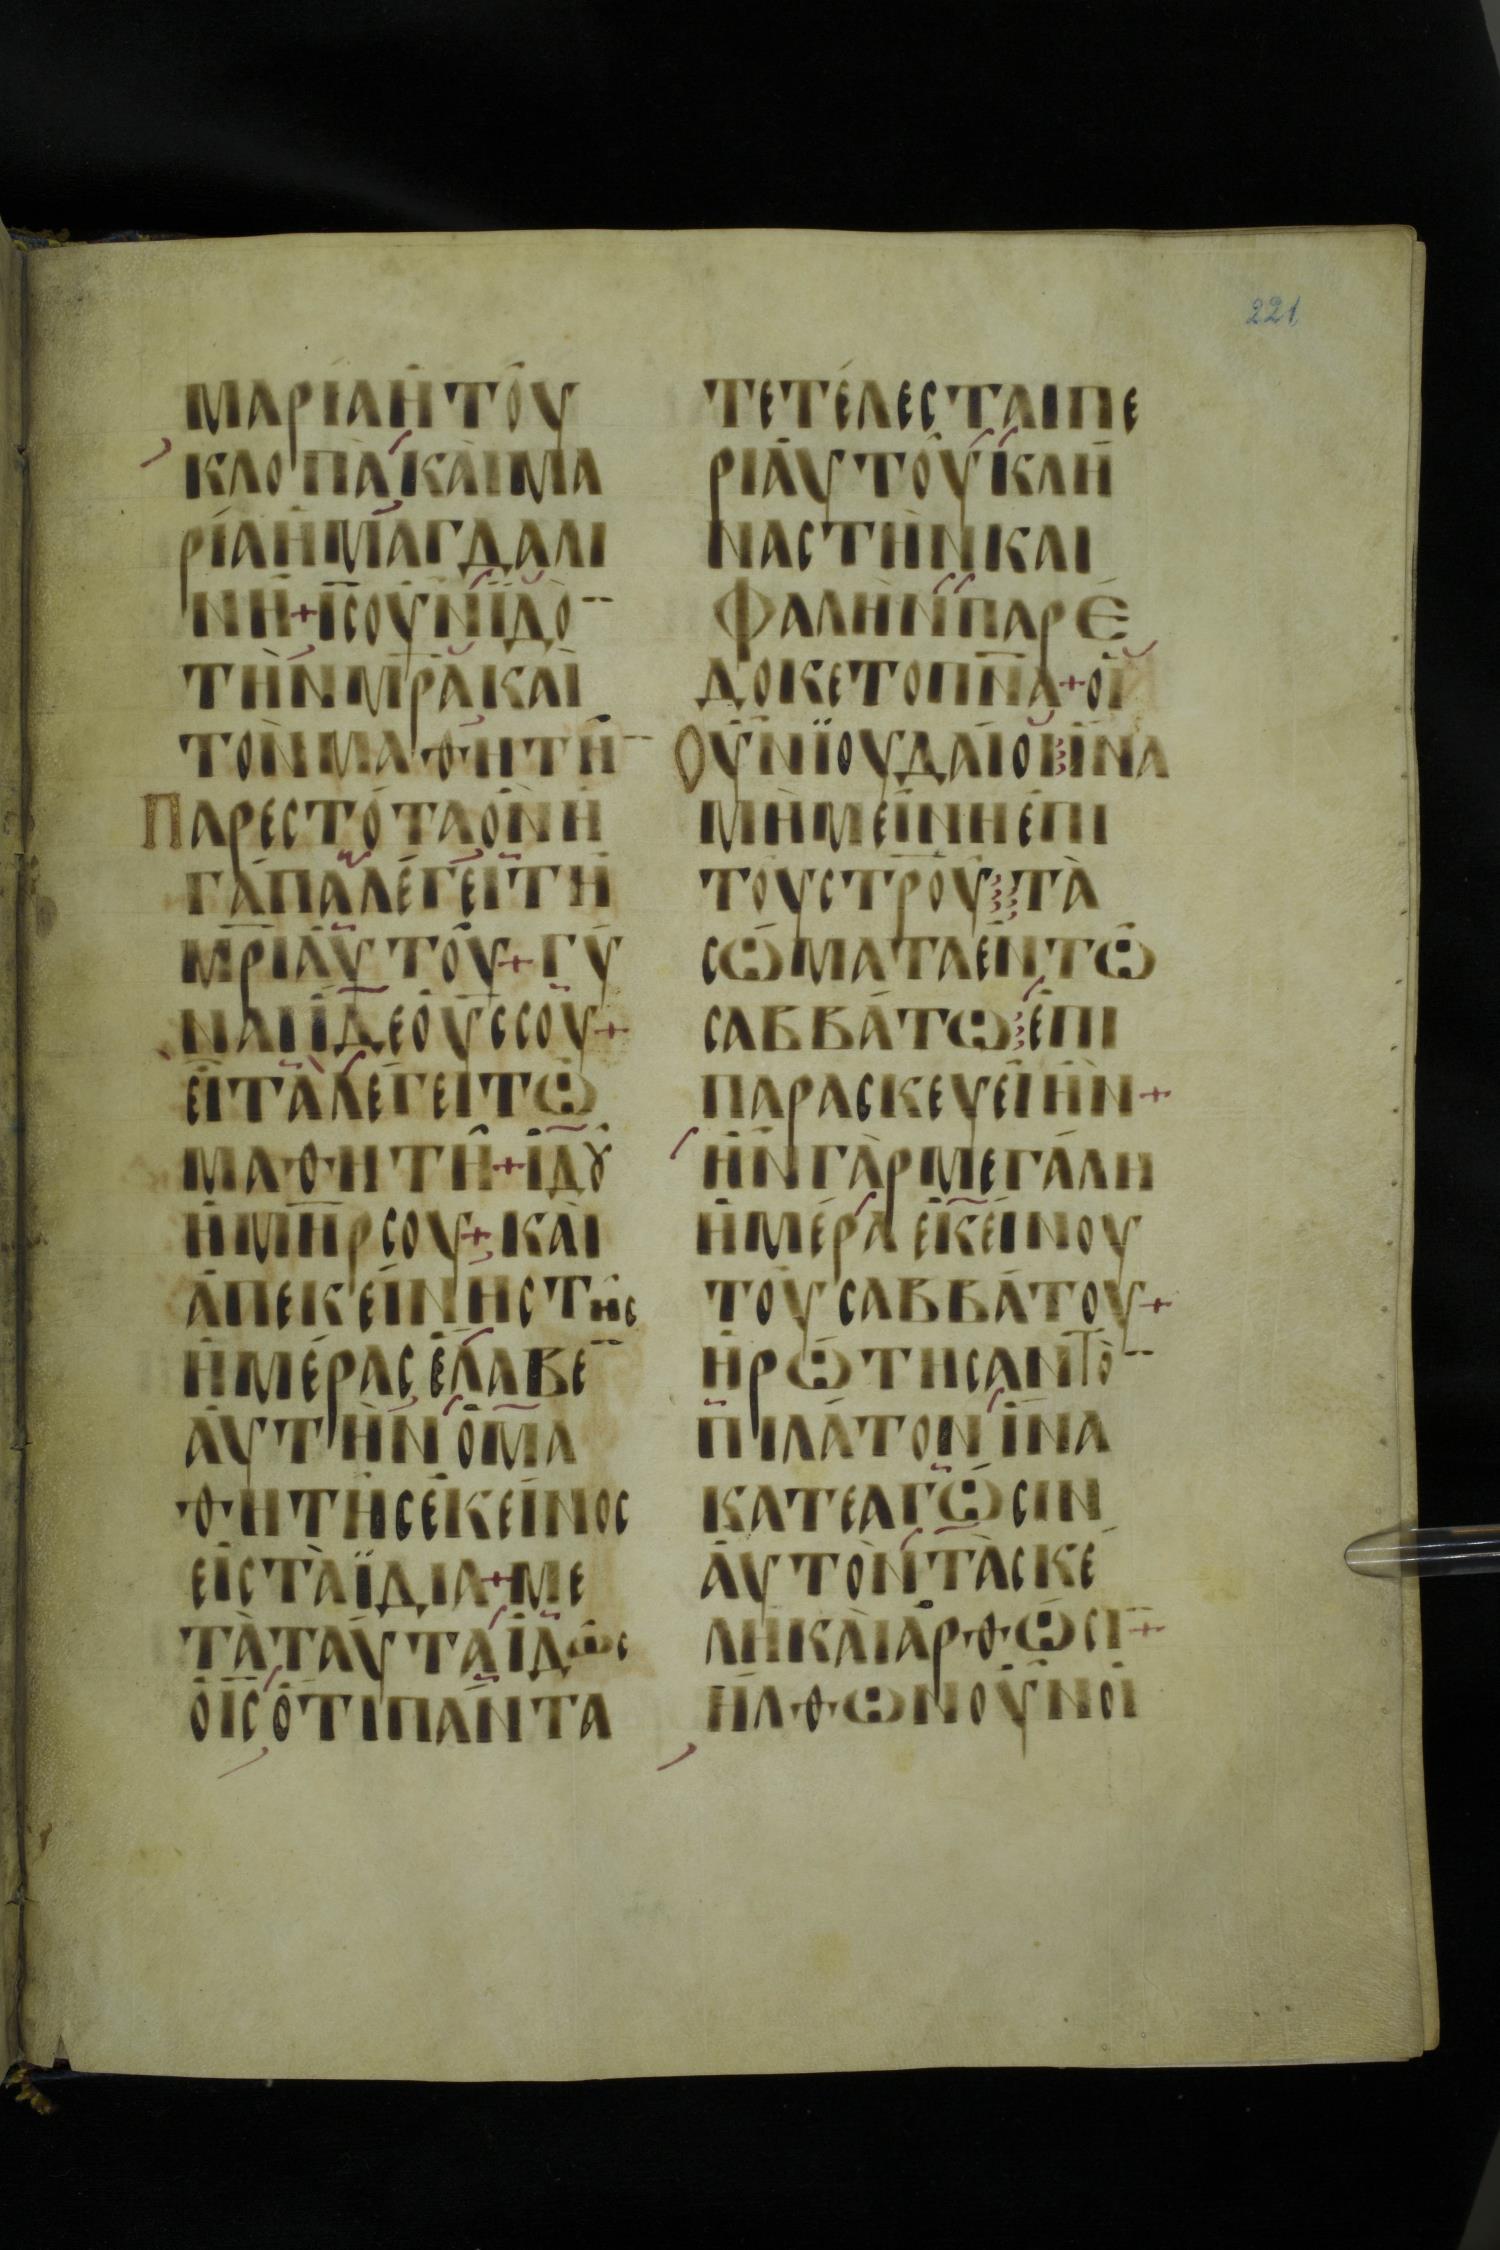 221
ΜΑΡΙΑΗΤΟΥ
ΚΛΟΠΑΚΑΙΜΑ
ΡΙΑΗΜΑΓΔΑΛΙ
ΝΗ+ΙΣΟΥΝΪΔΟ–
ΤΗΝΜΡΑΚΑΙ
ΤΟΝΜΑΘΗΤΗ–
ΠΑΡΕΣΤΟΤΑΟΝΗ
ΓΑΠΑΛΕΓΕΙΤΗ
ΜΡΙΑΥΤΟΥ+ΓΥ
ΝΑΙΪΔΕΟΥΣΣΟΥ+
ΕΙΤΑΛΕΓΕΙΤΩ
ΜΑΘΗΤΗ+ΙΔΟΥ
ΗΜΗΡΣΟΥ+ΚΑΙ
ΑΠΕΚΕΙΝΗΣΤΗΣ
ΗΜΕΡΑΣΕΛΑΒΕ–
ΑΥΤΗΝΟΜΑ
ΘΗΤΗΣΕΚΕΙΝΟΣ
ΕΙΣΤΑΪΔΙΑ+ΜΕ
ΤΑΤΑΥΤΑΙΔΩΣ
ΟΙΣΟΤΙΠΑΝΤΑ
ΤΕΤΕΛΕΣΤΑΙΠΕ
ΡΙΑΥΤΟΥΚΛΗ
ΝΑΣΤΗΝΚΑΙ
ΦΑΛΗΝΠΑΡΕ
ΔΟΚΕΤΟΠΝΑ+ΟΙ
ΟΥΝΪΟΥΔΑΙΟΙΙΝΑ
ΜΗΜΕΙΝΗΕΠΙ
ΤΟΥΣΤΡΟΥΤΑ
ΣΩΜΑΤΑΕΝΤΩ
ΣΑΒΒΑΤΩΕΠΙ
ΠΑΡΑΣΚΕΥΕΙΗΝ+
ΗΝΓΑΡΜΕΓΑΛΗ
ΗΜΕΡΑΕΚΕΙΝΟΥ
ΤΟΥΣΑΒΒΑΤΟΥ+
ΗΡΩΤΗΣΑΝΤΟ–
ΠΙΛΑΤΟΝΙΝΑ
ΚΑΤΕΑΓΩΣΙΝ
ΑΥΤΟΝΤΑΣΚΕ
ΛΗΚΑΙΑΡΘΩΣΙ–+
ΗΛΘΩΝΟΥΝΟΙ